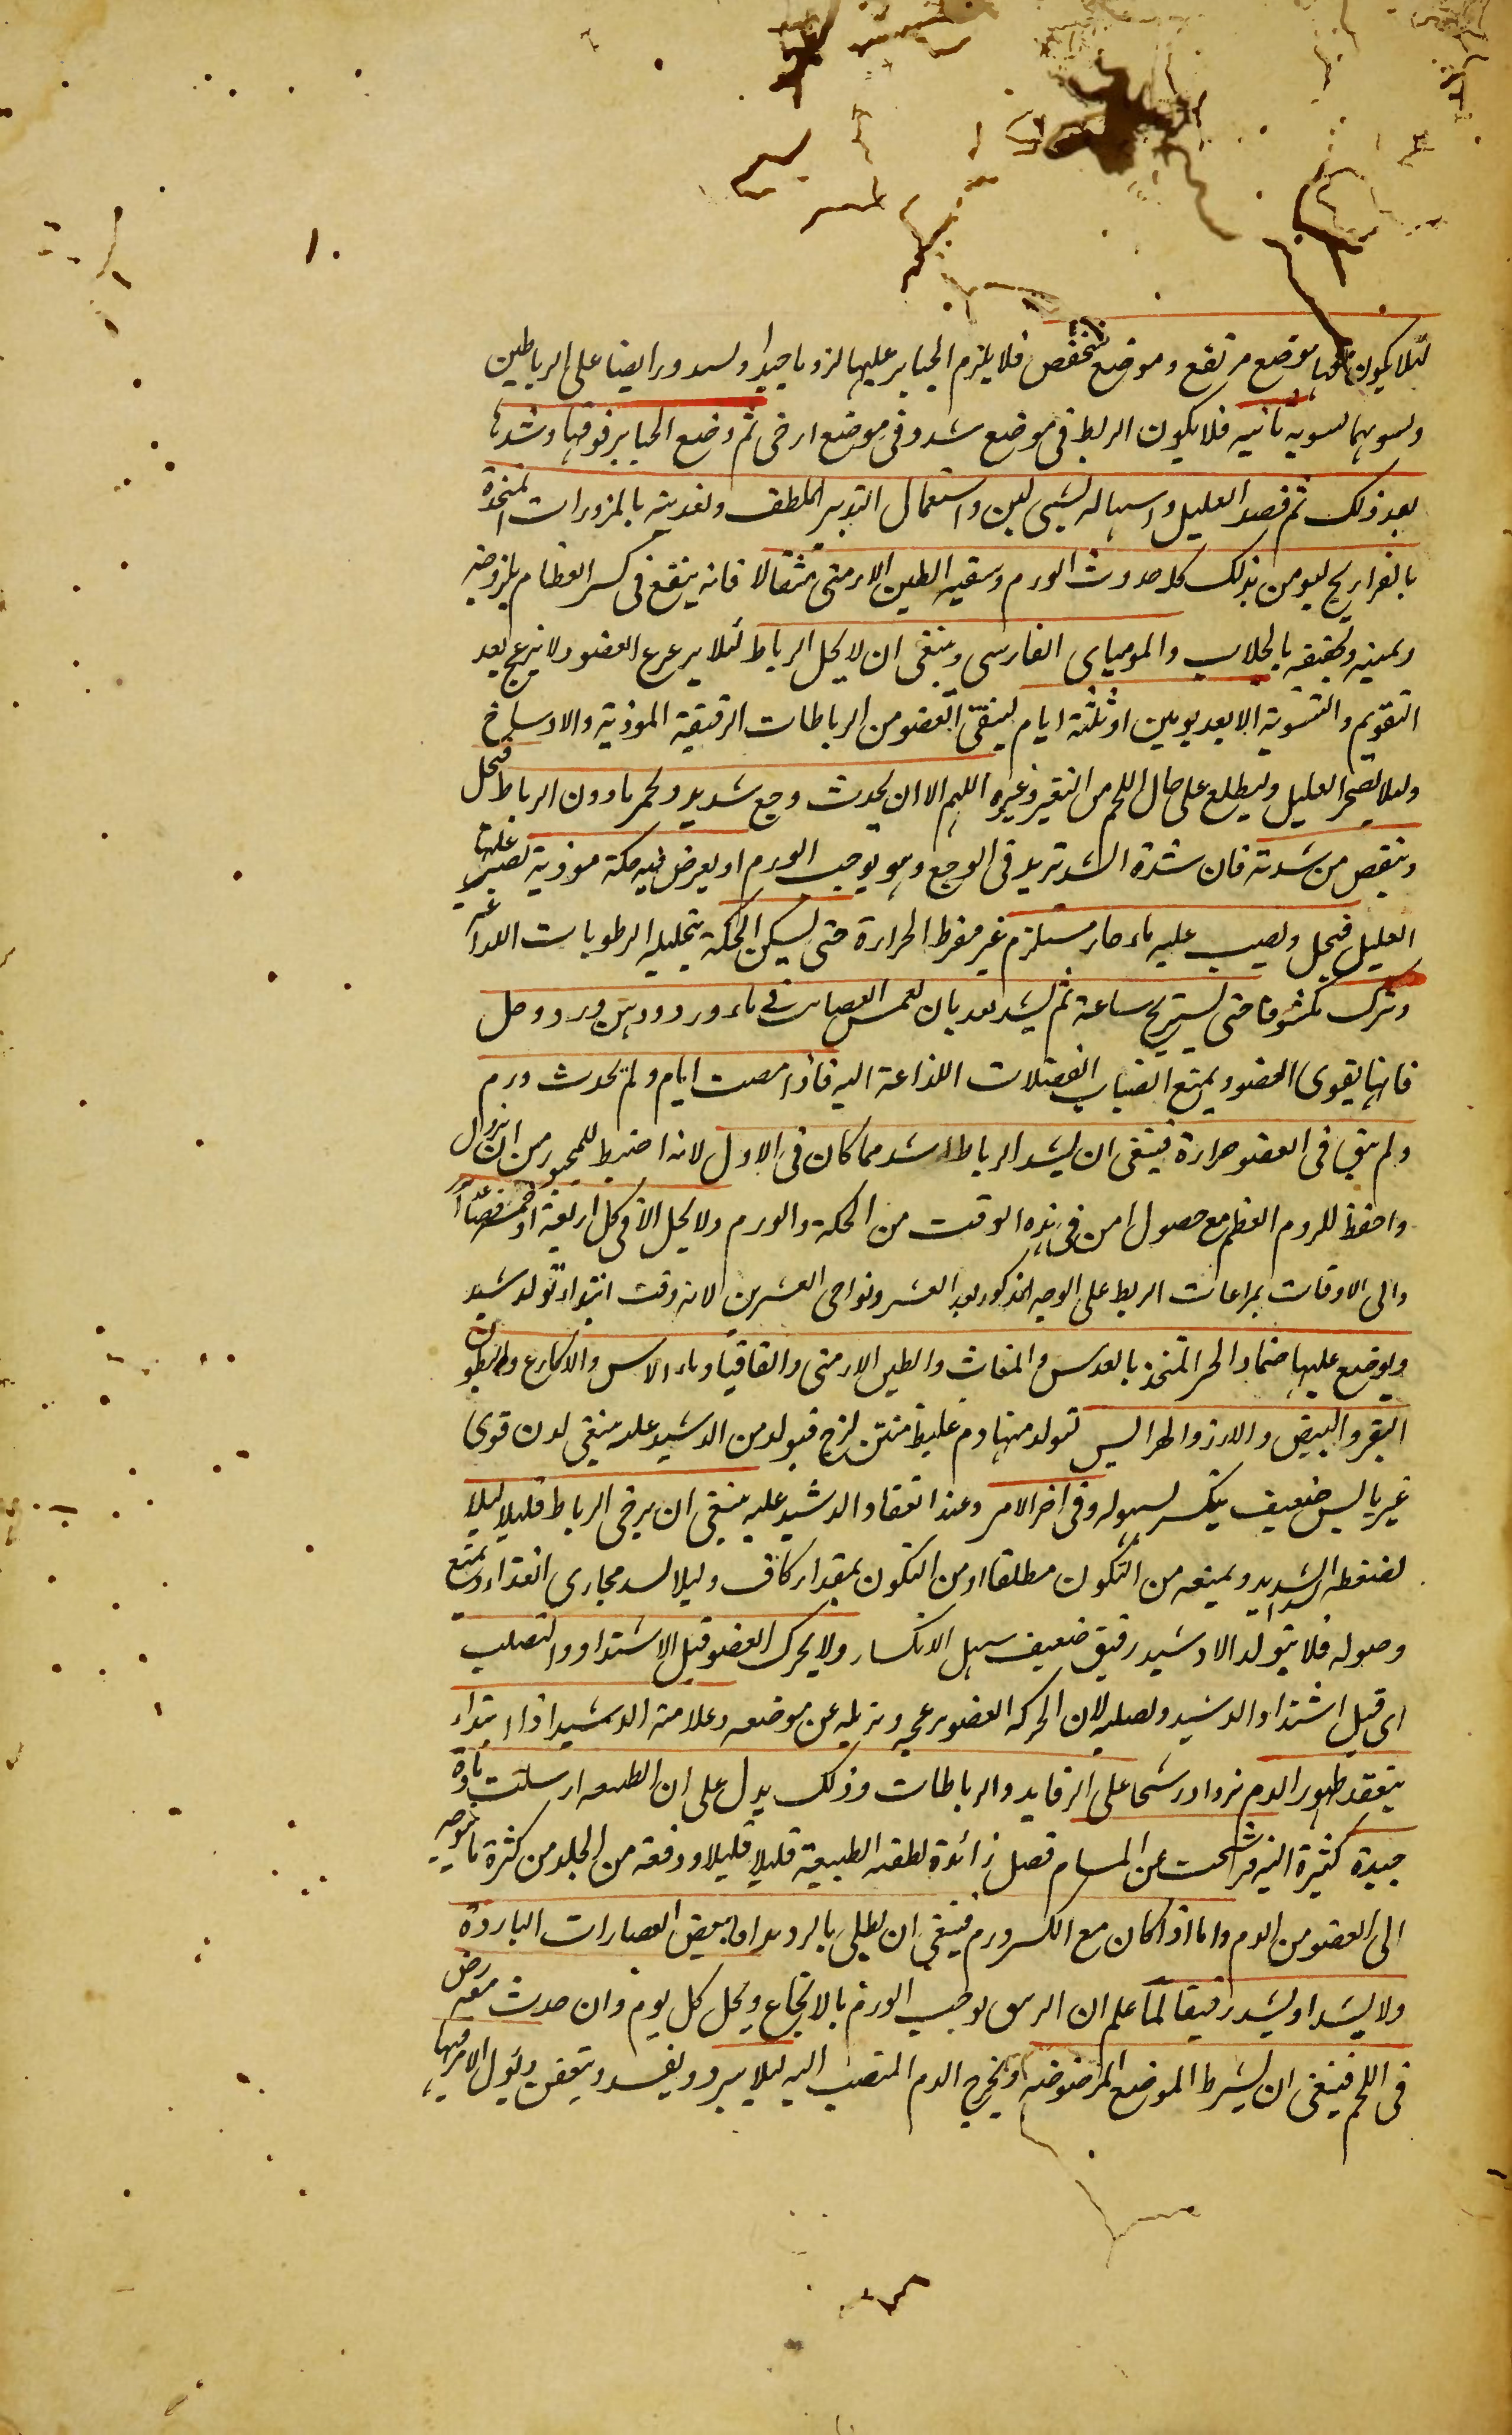 لئلا يكون فيها موضع مرتفع وموضع منخفض فلا يلزم الجباير عليها لزوما جيدا ولسد ورا ايضا على الرباطين
ولسويهما لسويه ثانيه فلا يكون الربط فى موضع شد وفى موضع ارخى ثم وضع الجباير فوقها وشدها
بعد ذلك ثم فصد العليل واسهاله لشىء لين واستعمال التدبير الملطف ولغديته بالمزورات المتخذة
بالفراريج ليومن بذلك كله حدوث الورم وسقيه الطين الارمنى مثقالا فانه ينفع فى كسر العظام بلزوجته
وتحفيفه بالجلاب والموميای الفارسى وينبغى ان لا يحل الرباط لئلا يرعرع العضو ولا ينزعج بعد
التقويم والتسوية الا بعد يومين او ثلثة ايام لينقى العضو من الرباطات الرقيقة الموذية والاوساخ
وليلا يضجر العليل وليطلع على حال اللحم من التغير وغيره اللهم الا ان يحدث وجع شديد وحمر ما دون الرباط فيحل
وينقص من شدته فان شدة الشد تزيد فى الوجع وهو يوجب الورم او يعرض فيه حكة موذية لصبر عليها
العليل فيحل ويصب عليه ماء حار مستلزم غير مفرط الحرارة حتى يسكن الحكة بتحليله الرطوبات اللذاعة
ويترك مكشوفا حتى يستريح ساعة ثم يشد بعد بان لغمس العصابت فى ماء ورد ودهن ورد وخل
فانها يقوى العضو ويمنع انصباب الفضلات اللذاعة اليه فاذا مضت ايام ولم يحدث ورم
ولم يبق فى العضو حرارة فينبغى ان يشد الرباط اشد مما كان فى الاول لانه اضبط للمجبور من ان يزول
واحفظ للروم العظم مع حصول امن فى هذه الوقت من الحكة والورم ولا يحل الا فى كل اربعة او خمسة فصاعدا
والى الاوقات بمراعات الربط على الوجه المذكور بعد العشر ونواحى العشرين لانه وقت ابتداء تولد دشبد
ويوضع عليها ضماد الحر المتخذ بالعدس والمغاث والطين الارمنى والقاقيا وماء الاس والاكارع وبطون
البقر والبيض والارز والهرايس لتولد منها دم غليظ متين لزج فيولد من الدشبد علیه ينبغى لدن قوى
غير يابس ضعيف ينكسر لسهوله وفى اخر الامر وعند انعقاد الدشبد عليه ينبغى ان يرخى الرباط قليلا ليلا
لضغطه الشديد ويمنعه من التكون مطلقا او من التكون بمقدار كاف وليلا لسد مجارى الغذاء ويمنع
وصوله فلا يتولد الا دشبد رقيق ضعيف سهل الانكسار ولا يحرك العضو قبل الاشتداد والتصلب
اى قبل اشتداد الدشبد ولصلبه لان الحركة العضو يزعجه ويزيله عن موضعه وعلامة الدشبد اذا ابتداء
ينعقد ظهور الدم نزوا درشحا على الرفايد والرباطات وذلك يدل على ان الطبيعه ارسلت مادة
جيدة كثيرة اليه فرشحت عن المسام فصل زائدة لطفته الطبيعة قليلا قليلا ودفعه من الجلد من كثرة ما توجه
الى العضو من الدم واما اذا كان مع الكسر ورم فينبغى ان يطلى بالروبدا مابعض العصارات الباردة
ولا يشد او يشد رقيقا لما علم ان الربط يوجب الورم بالايجاع ويحل كل يوم وان حدث معه رض
فى اللحم فينبغى ان يشرط الموضع المرضوض ويخرج الدم المنصب اليه ليلا يبرد ويفسد ويتعفن ويئول الامر فيها